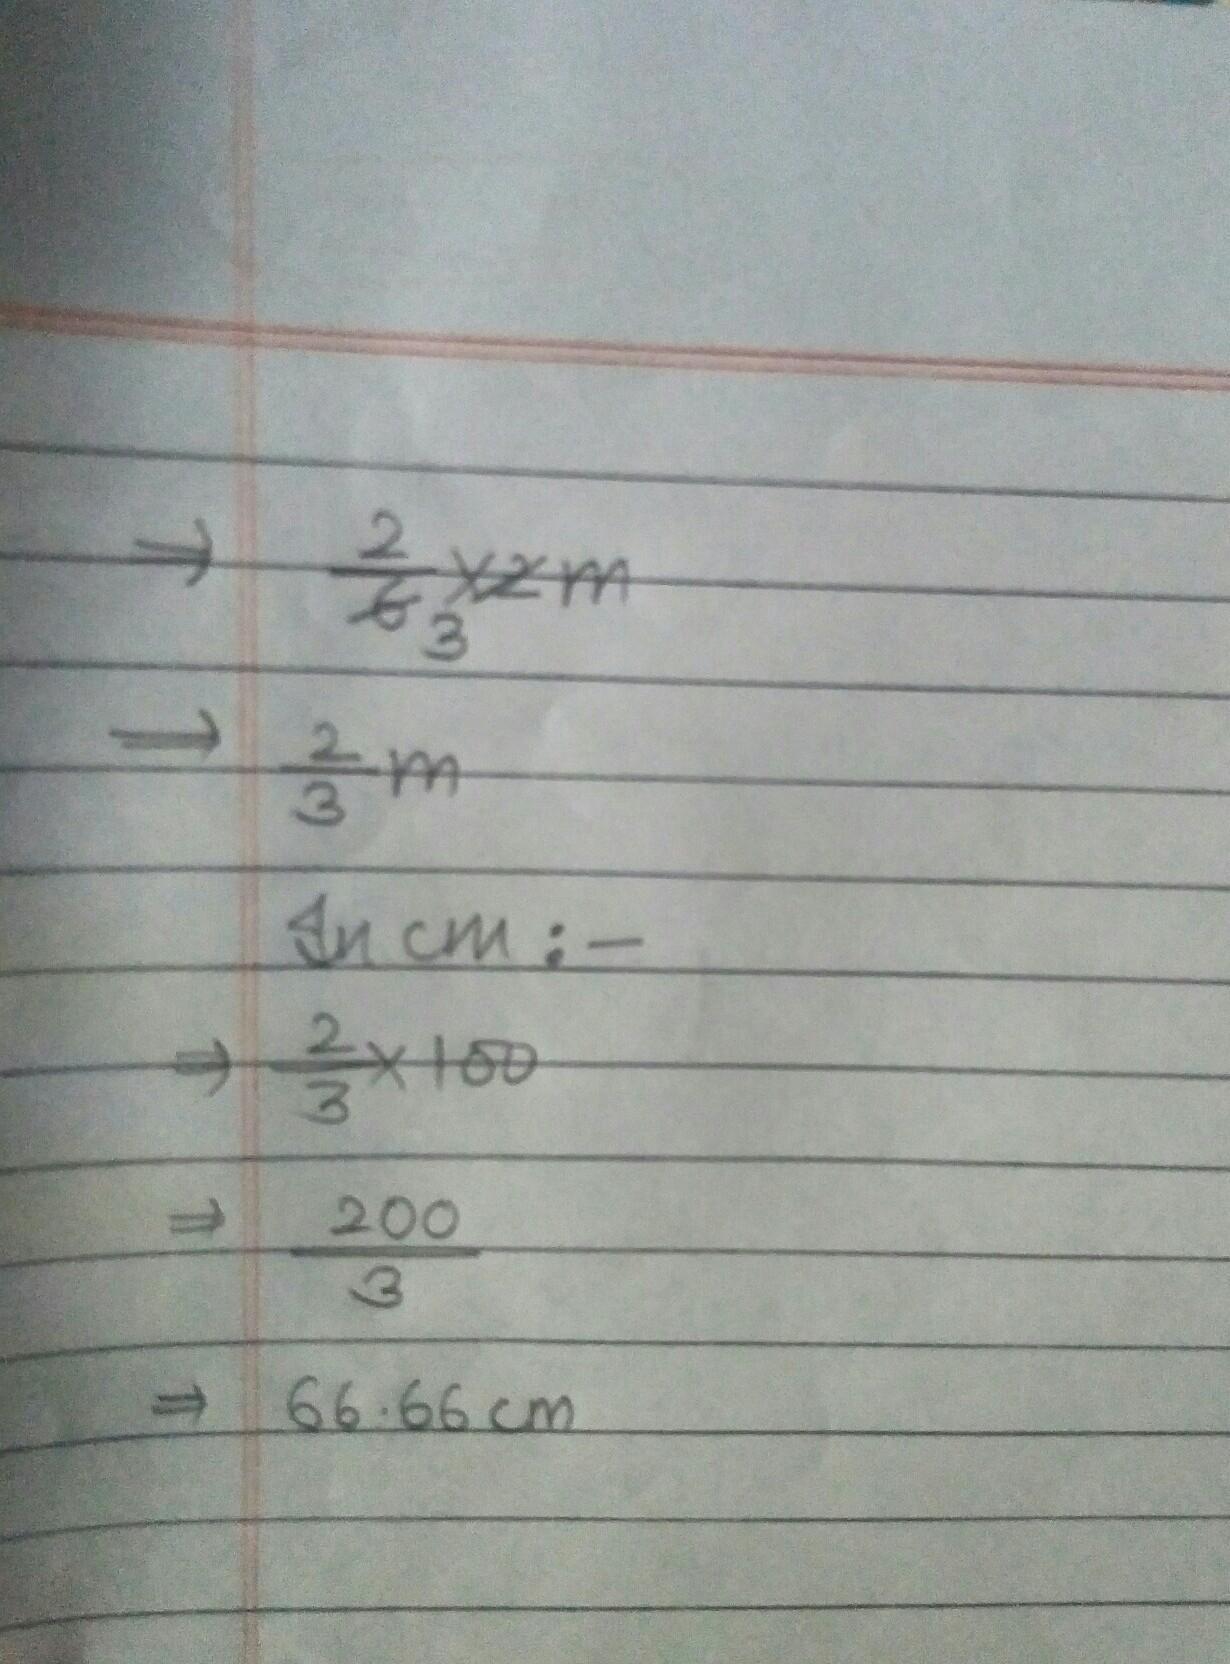 ⇒ 2/6 3 ×2 m
⇒ 2/3 m
In cm :-
⇒ 2/3 × 100
⇒ 200/3
⇒ 66.66 cm